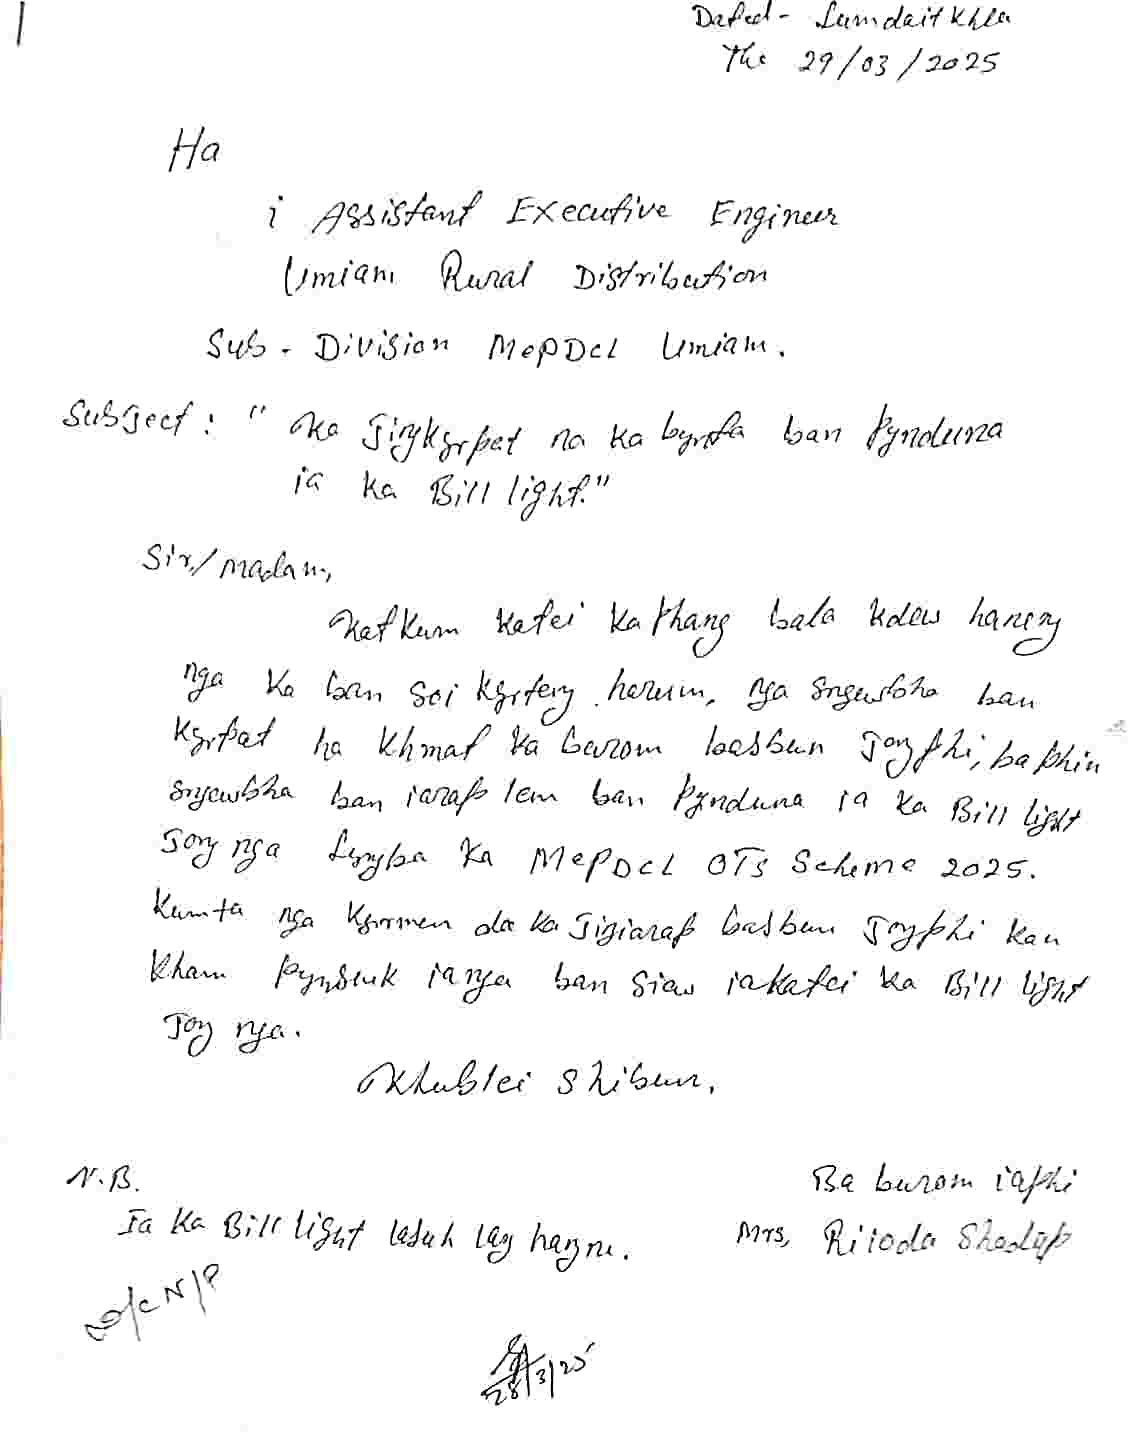 1
Dated - Lumdaitkhla
The 29/03/2025
Ha
i Assistant Executive Engineer
Umiam Rural Distribution
Sub - Division MePDCL Umiam.
Subject : " Ka Jingkyrpat na ka bynta ban Pynduna
ia ka Bill light."
Sir/madam,
Katkum katei ka phang bala kdew haneng
nga ka ban soi kyrteng harum, nga sngewbha ban
kyrpat ha khmat ka burom basbun jong phi, ba phin
sngewbha ban iarap lem ban pynduna ia ka Bill light
jong nga lyngba ka MePDCL OTS Scheme 2025.
Kumta nga kyrmen da ka jigiarap basbun jongphi kan
kham pynsuk ianga ban siaw iakatei ka Bill light
jong nga.
Khublei Shibun,
N.B.
Ba burom iaphi
Ia ka Bill light lasuh lang hangne.
Mrs, Riloda Shadap
28/3/25